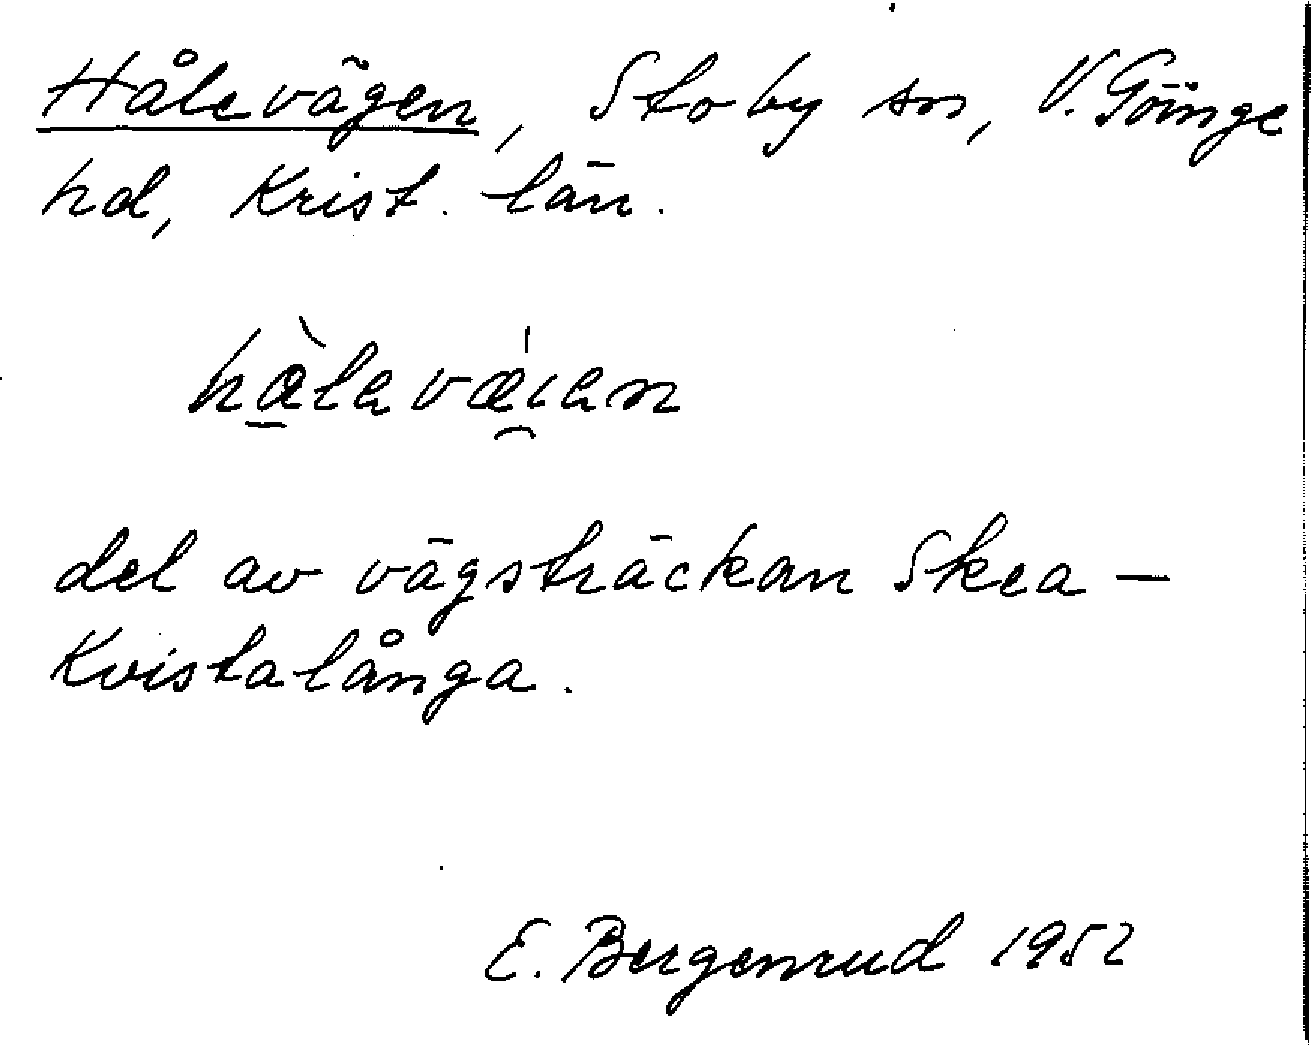 Hålevägen, Stoby sn, V. Göinge
hd, Krist. län.
hàlavæ̍ıan
del av vägsträckan Skea -
Kvistalånga.
E. Bergenrud 1952